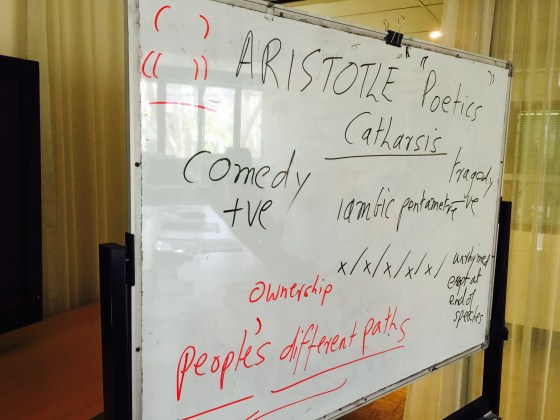 ( )
(( ))
ARISTOTLE "Poetics"
Catharsis
comedy
+ve
tragedy
-ve
iambic pentametre
x/x/x/x/x/
unrhymed
except at
end of
speeches
ownership
people's different paths